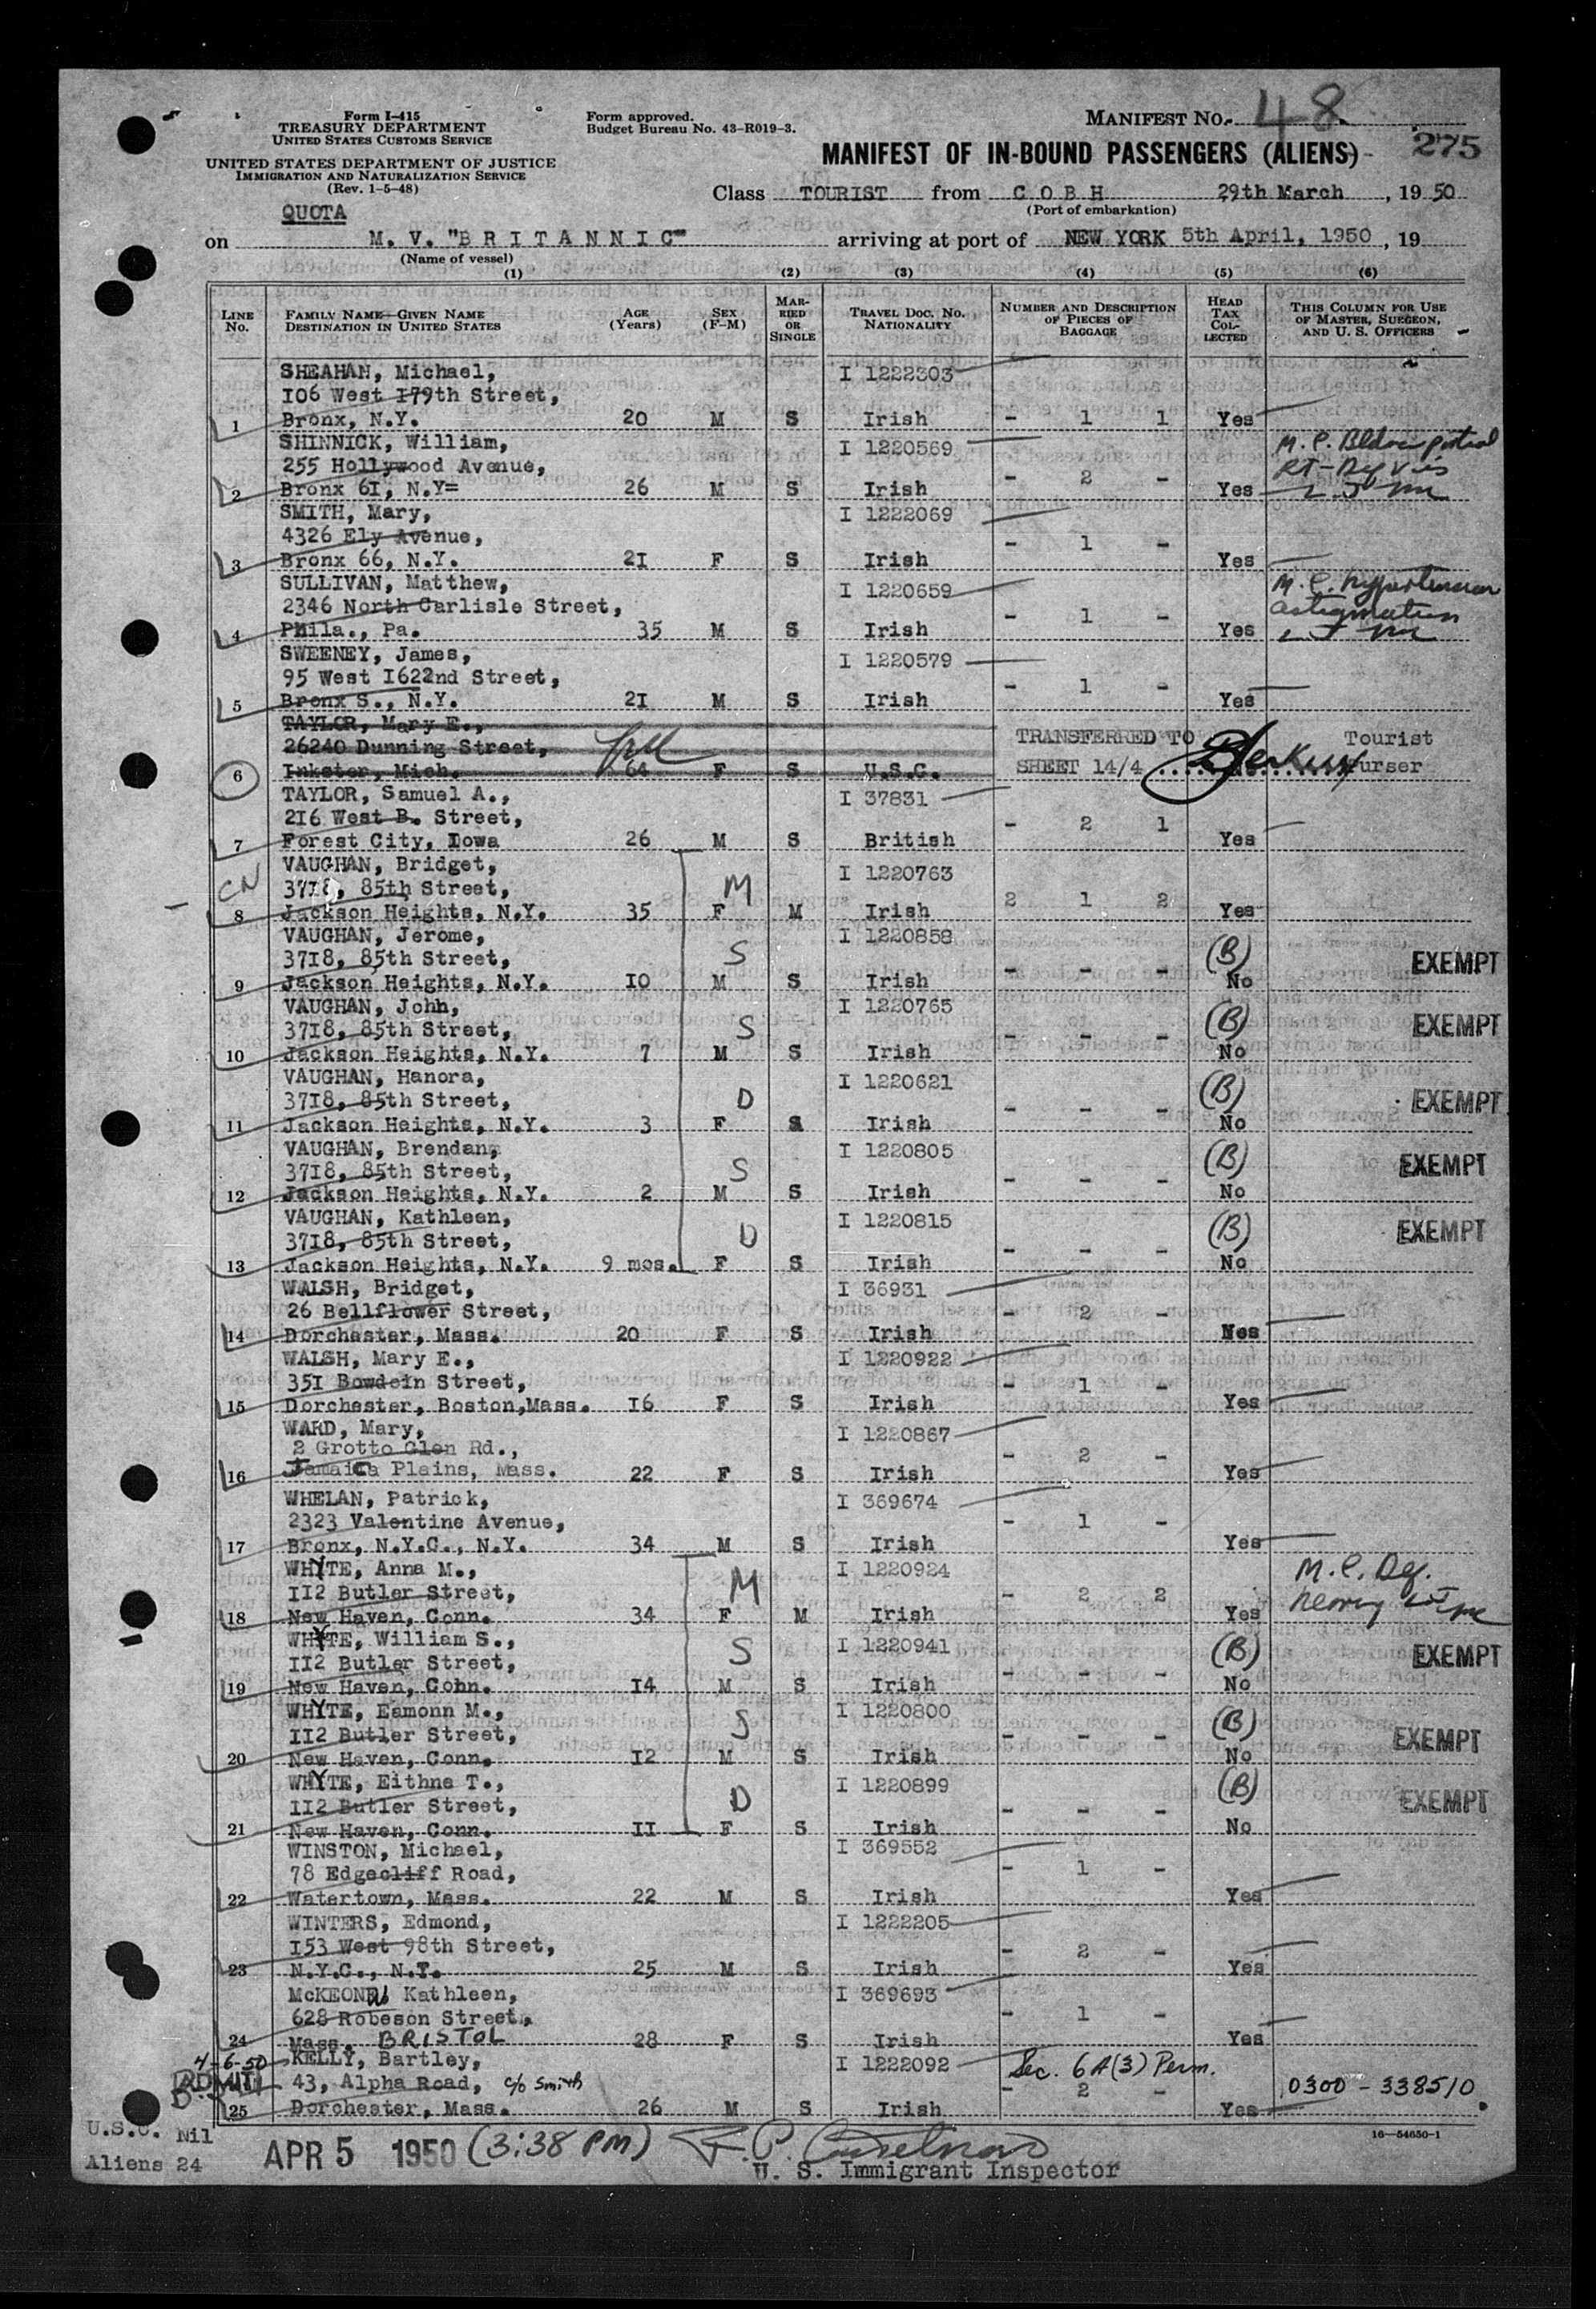 Form I-415
TREASURY DEPARTMENT
UNITED STATES CUSTOMS SERVICE
UNITED STATES DEPARTMENT OF JUSTICE
IMMIGRATION AND NATURALIZATION SERVICE
(Rev. 1-5-48)
Form approved.
Budget Bureau No. 43-R019-3.
MANIFEST NO. 48
275
MANIFEST OF IN-BOUND PASSENGERS (ALIENS)
Class TOURIST from C O B H 29th March , 19 50
(Port of embarkation)
QUOTA
on M. V. "B R I T A N N I C" arriving at port of NEW YORK 5th April, 1950 , 19
(Name of vessel)
(1) (2) (3) (4) (5) (6)
LINE No. FAMILY NAME—GIVEN NAME DESTINATION IN UNITED STATES AGE (Years) SEX (F-M) MARRIED OR SINGLE TRAVEL DOC. NO. NATIONALITY NUMBER AND DESCRIPTION OF PIECES OF BAGGAGE HEAD TAX COLLECTED THIS COLUMN FOR USE OF MASTER, SURGEON, AND U. S. OFFICERS
SHEAHAN, Michael, I 1222303
106 West 179th Street,
1 Bronx, N.Y. 20 M S Irish - 1 1 Yes
SHINNICK, William, I 1220569 M.C.
255 Hollywood Avenue,
2 Bronx 61, N.Y= 26 M S Irish - 2 - Yes
SMITH, Mary, I 1222069
4326 Ely Avenue,
3 Bronx 66, N.Y. 21 F S Irish - 1 - Yes
SULLIVAN, Matthew, I 1220659 M.C. hypertension
2346 North Carlisle Street, astigmatism
4 Phila., Pa. 35 M S Irish - 1 - Yes
SWEENEY, James, I 1220579
95 West 1622nd Street,
5 Bronx S., N.Y. 21 M S Irish - 1 - Yes
TAYLOR, Mary E.,
26240 Dunning Street, TRANSFERRED TO Tourist
6 Inkster, Mich. 64 F S U.S.C. SHEET 14/4 Purser
TAYLOR, Samuel A., I 37831
216 West B. Street,
7 Forest City, Iowa 26 M S British - 2 1 Yes
VAUGHAN, Bridget, I 1220763
CN 3718, 85th Street, M
8 Jackson Heights, N.Y. 35 F M Irish 2 1 2 Yes
VAUGHAN, Jerome, I 1220858
3718, 85th Street, S (B) EXEMPT
9 Jackson Heights, N.Y. 10 M S Irish - - - No
VAUGHAN, John, I 1220765
3718, 85th Street, S (B) EXEMPT
10 Jackson Heights, N.Y. 7 M S Irish - - - No
VAUGHAN, Hanora, I 1220621
3718, 85th Street, D (B) EXEMPT
11 Jackson Heights, N.Y. 3 F S Irish - - - No
VAUGHAN, Brendan, I 1220805
3718, 85th Street, S (B) EXEMPT
12 Jackson Heights, N.Y. 2 M S Irish - - - No
VAUGHAN, Kathleen, I 1220815
3718, 85th Street, D (B) EXEMPT
13 Jackson Heights, N.Y. 9 mos. F S Irish - - - No
WALSH, Bridget, I 36931
26 Bellflower Street,
14 Dorchester, Mass. 20 F S Irish - 2 - Yes
WALSH, Mary E., I 1220922
351 Bowdoin Street,
15 Dorchester, Boston,Mass. 16 F S Irish - 1 - Yes
WARD, Mary, I 1220867
2 Grotto Glen Rd.,
16 Jamaica Plains, Mass. 22 F S Irish - 2 - Yes
WHELAN, Patrick, I 369674
2323 Valentine Avenue,
17 Bronx, N.Y.C., N.Y. 34 M S Irish - 1 - Yes
WHYTE, Anna M., I 1220924 M.C. Def.
112 Butler Street, M
18 New Haven, Conn. 34 F M Irish - 2 2 Yes
WHYTE, William S., I 1220941
112 Butler Street, S (B) EXEMPT
19 New Haven, Conn. 14 M S Irish - - - No
WHYTE, Eamonn M., I 1220800
112 Butler Street, S (B) EXEMPT
20 New Haven, Conn. 12 M S Irish - - - No
WHYTE, Eithne T., I 1220899
112 Butler Street, D (B) EXEMPT
21 New Haven, Conn. 11 F S Irish - - - No
WINSTON, Michael, I 369552
78 Edgecliff Road,
22 Watertown, Mass. 22 M S Irish - 1 - Yes
WINTERS, Edmond, I 1222205
153 West 98th Street,
23 N.Y.C., N.Y. 25 M S Irish - 2 - Yes
McKEON, Kathleen, I 369693
628 Robeson Street,
24 Mass. BRISTOL 28 F S Irish - 1 - Yes
4-6-50 KELLY, Bartley, I 1222092 Sec. 6A(3) Perm.
43, Alpha Road, c/o Smith 0300-338510
25 Dorchester, Mass. 26 M S Irish - 2 - Yes
U.S.C. Nil
Aliens 24
APR 5 1950 (3:38 PM)
U. S. Immigrant Inspector
16—54650-1